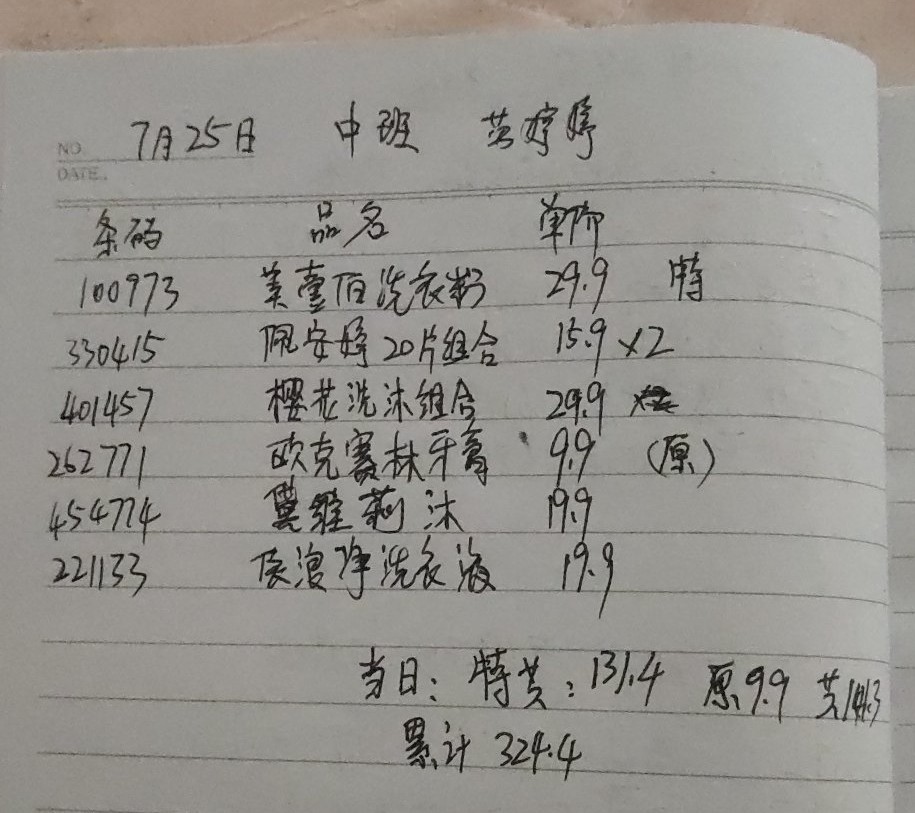 NO.
7月25日 中班 黄婷婷
DATE.
条码 品名 单价
100973 美壹佰洗衣粉 29.9 特
330415 佩安婷20片组合 15.9 ×2
401457 樱花洗沐组合 29.9
262771 欧克赛林牙膏 9.9 (原)
454774 莉沐 19.9
221133 净洗衣液 19.9
当日: 特共: 131.4 原9.9 共141.3
累计 324.4